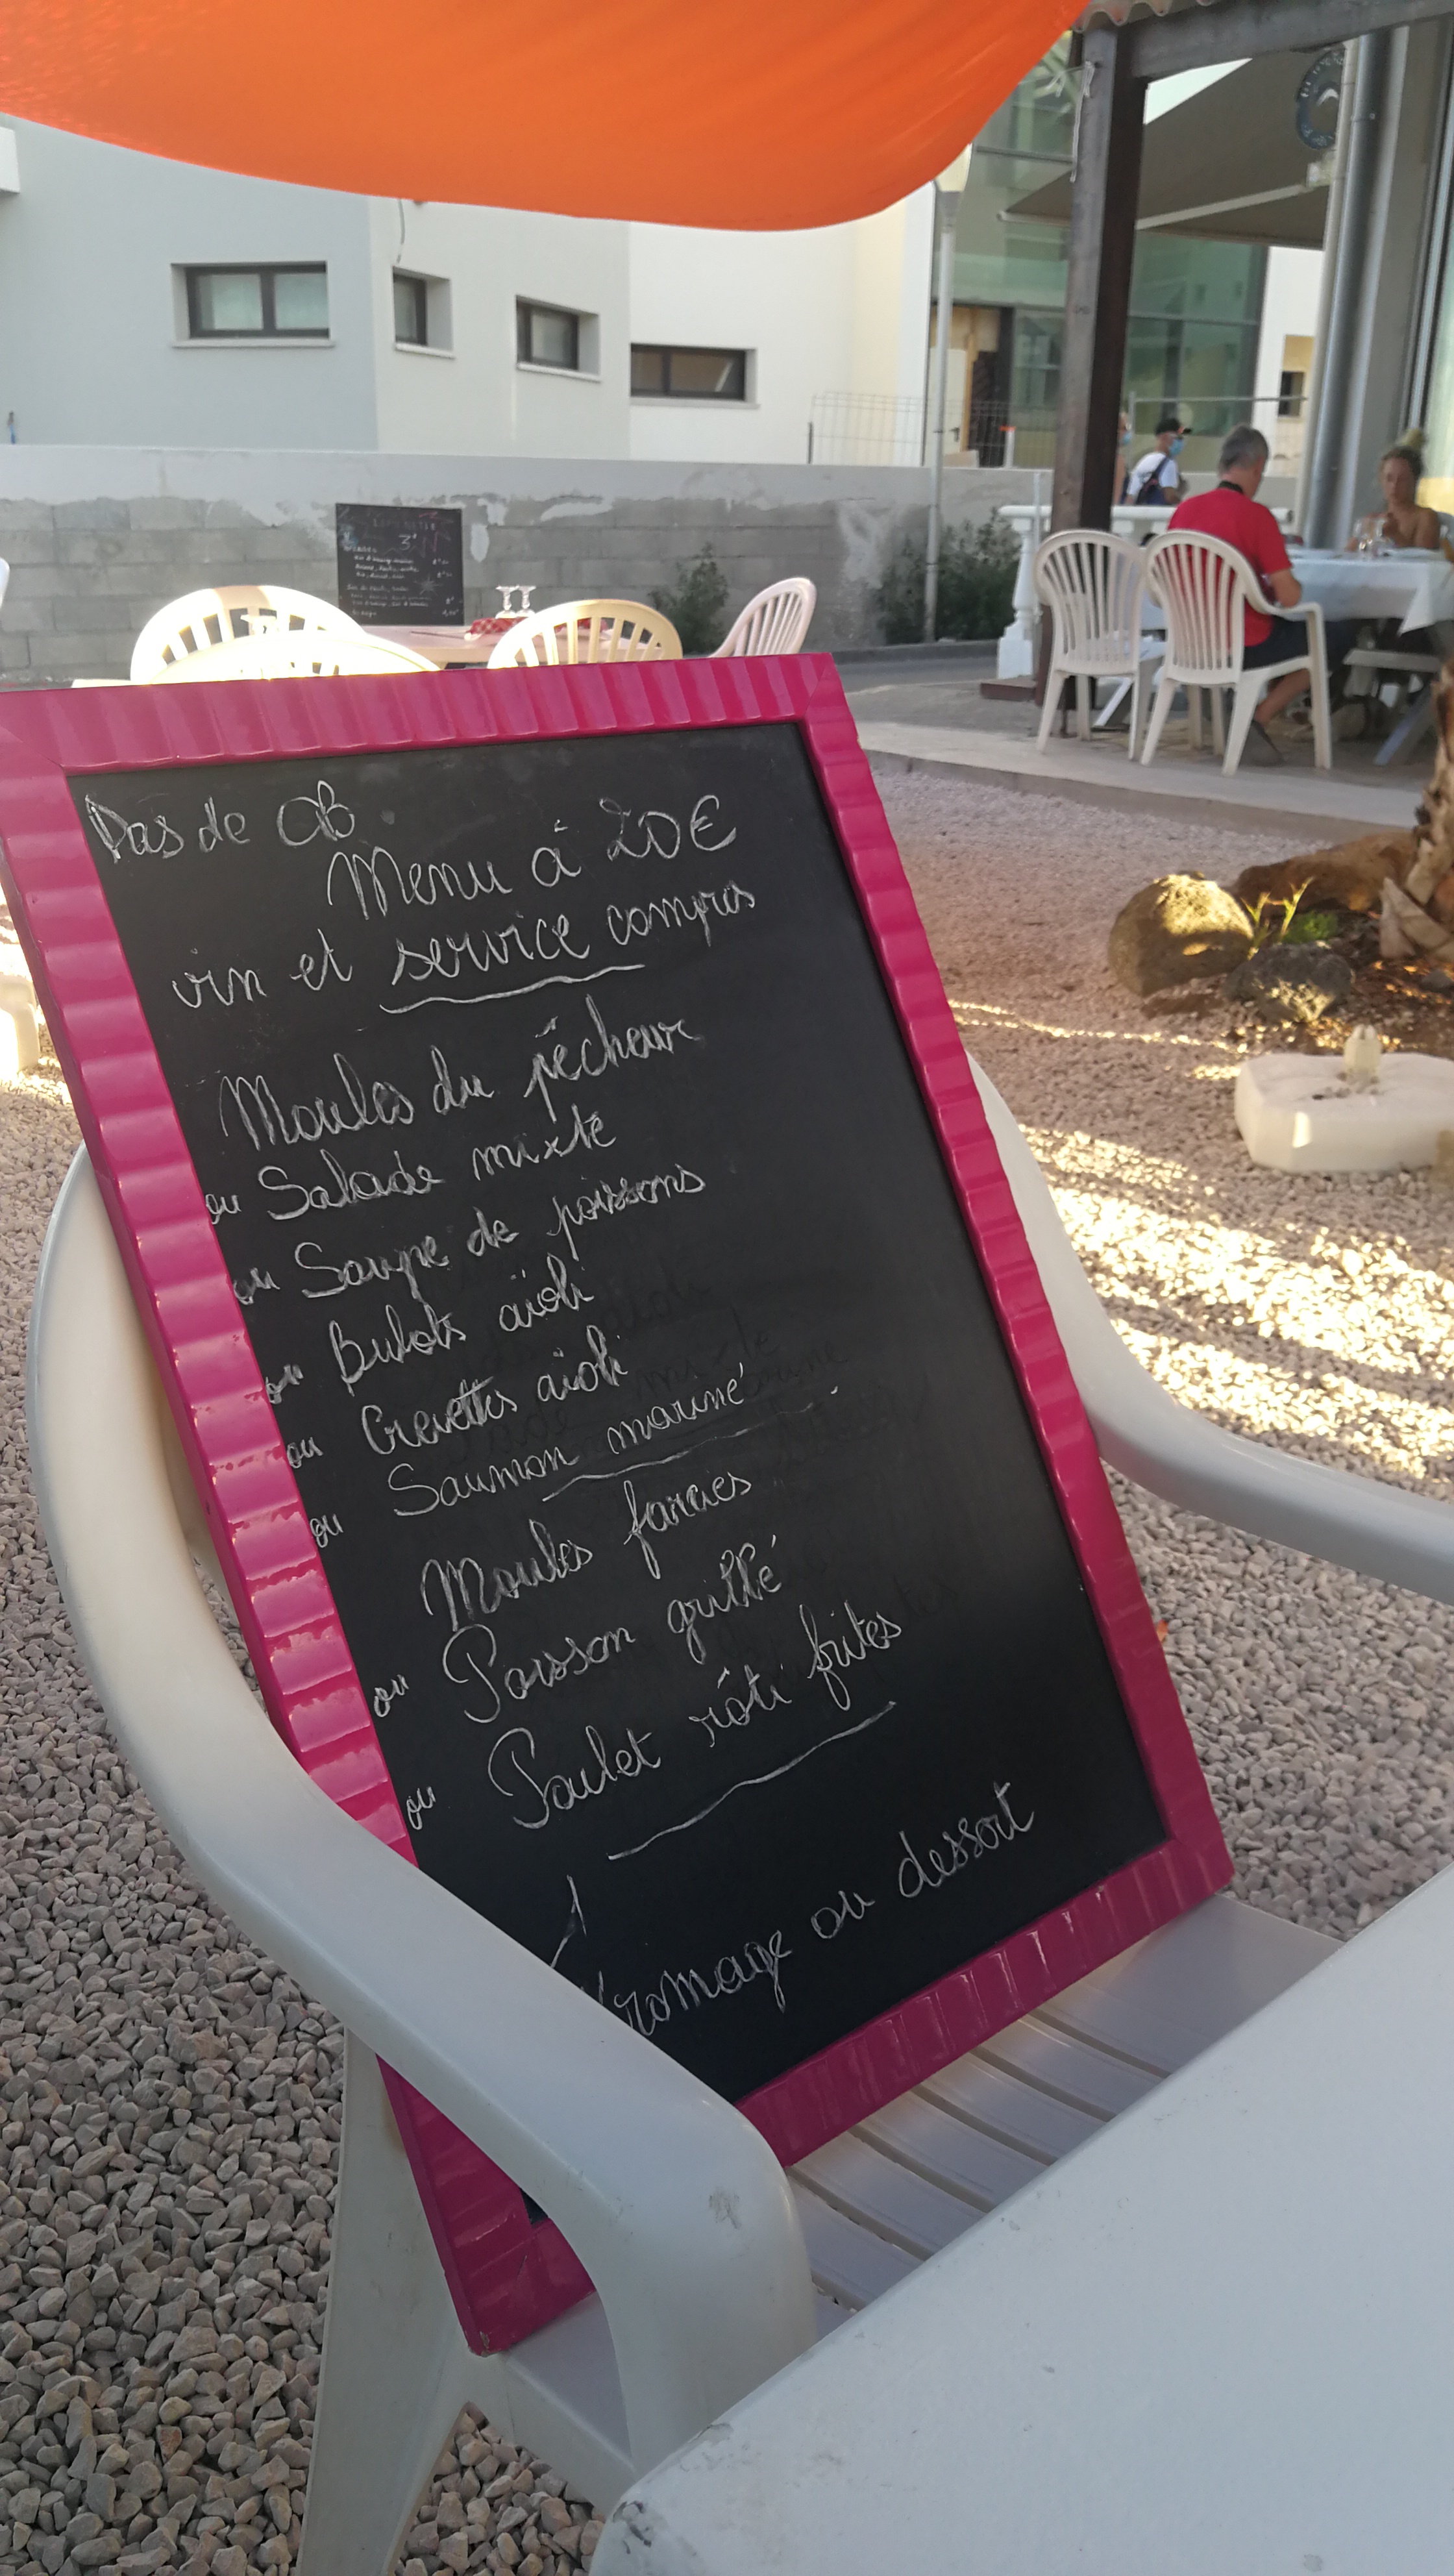 Pas de CB.
Menu à 20€
vin et service compris
Moules du pêcheur
ou Salade mixte
ou Soupe de poissons
ou Bulots aïoli
ou Crevettes aïoli
ou Saumon mariné
Moules farcies
ou Poisson grillé
ou Poulet rôti frites
Fromage ou dessert